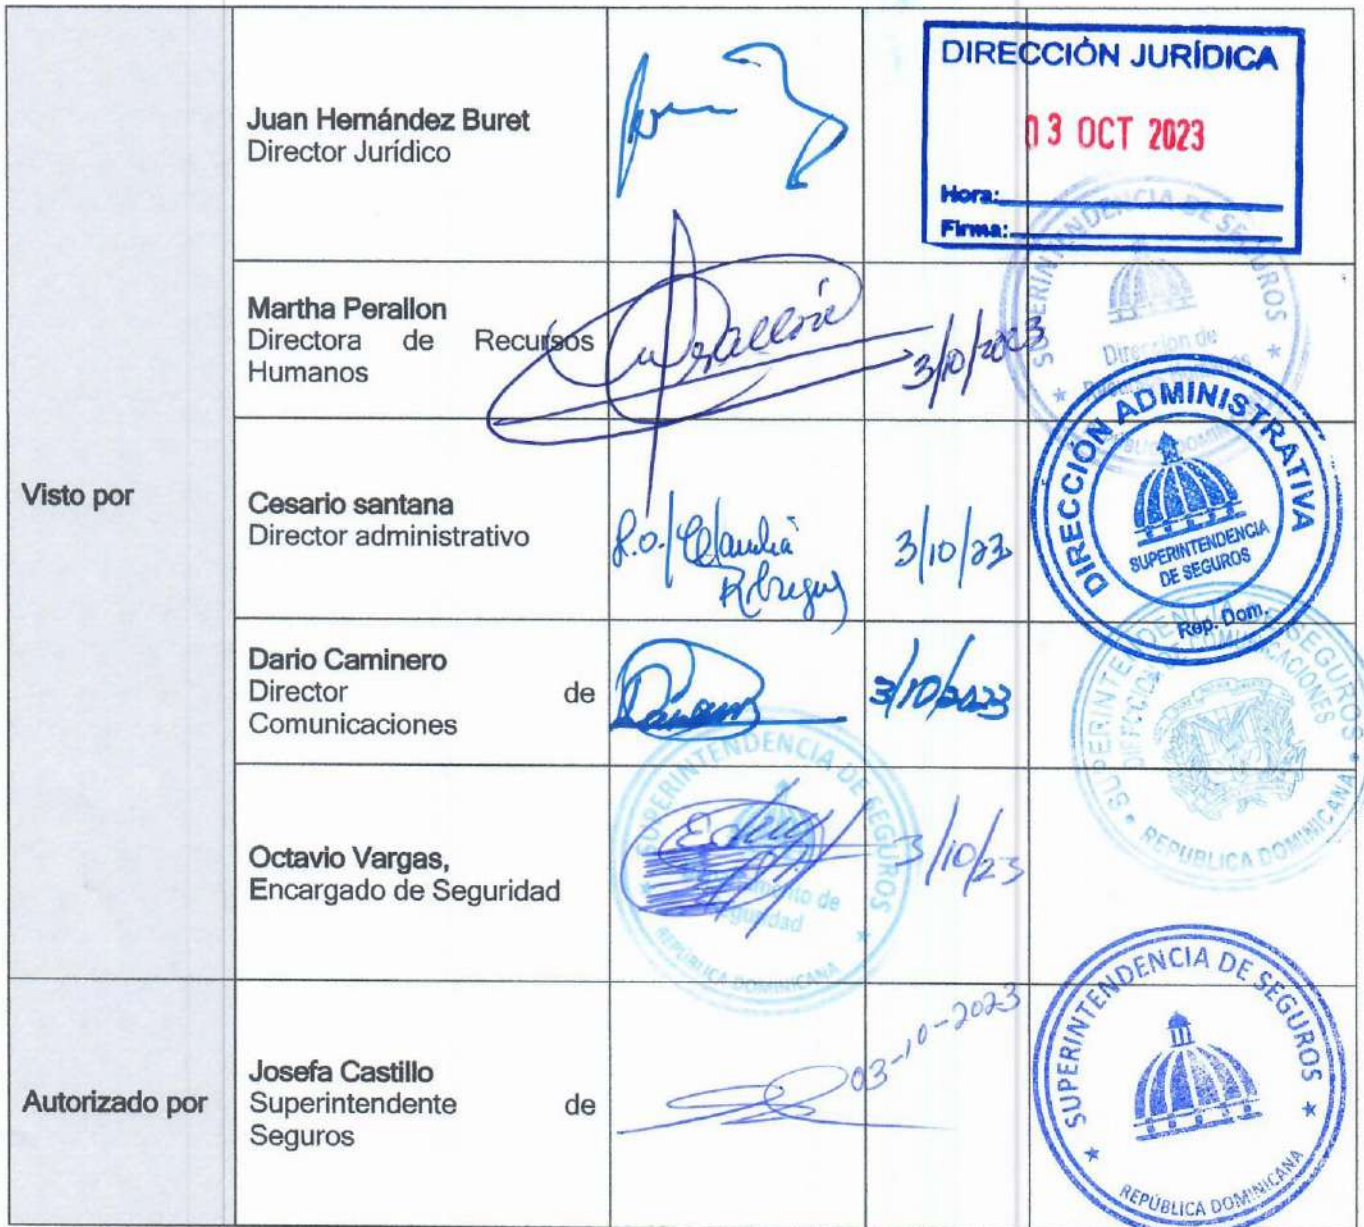 Visto por
Juan Hernández Buret
Director Jurídico
DIRECCIÓN JURÍDICA
03 OCT 2023
Hora:
Firma:
Martha Perallon
Directora de Recursos
Humanos
3/10/2023
SUPERINTENDENCIA DE SEGUROS
Dirección de
Cesario santana
Director administrativo
3/10/23
DIRECCIÓN ADMINISTRATIVA
SUPERINTENDENCIA
DE SEGUROS
Rep. Dom.
Dario Caminero
Director de
Comunicaciones
3/10/2023
SUPERINTENDENCIA DE SEGUROS
REPUBLICA DOMINICANA
Octavio Vargas,
Encargado de Seguridad
3/10/23
SUPERINTENDENCIA DE SEGUROS
REPUBLICA DOMINICANA
Autorizado por
Josefa Castillo
Superintendente de
Seguros
03-10-2023
SUPERINTENDENCIA DE SEGUROS
REPÚBLICA DOMINICANA